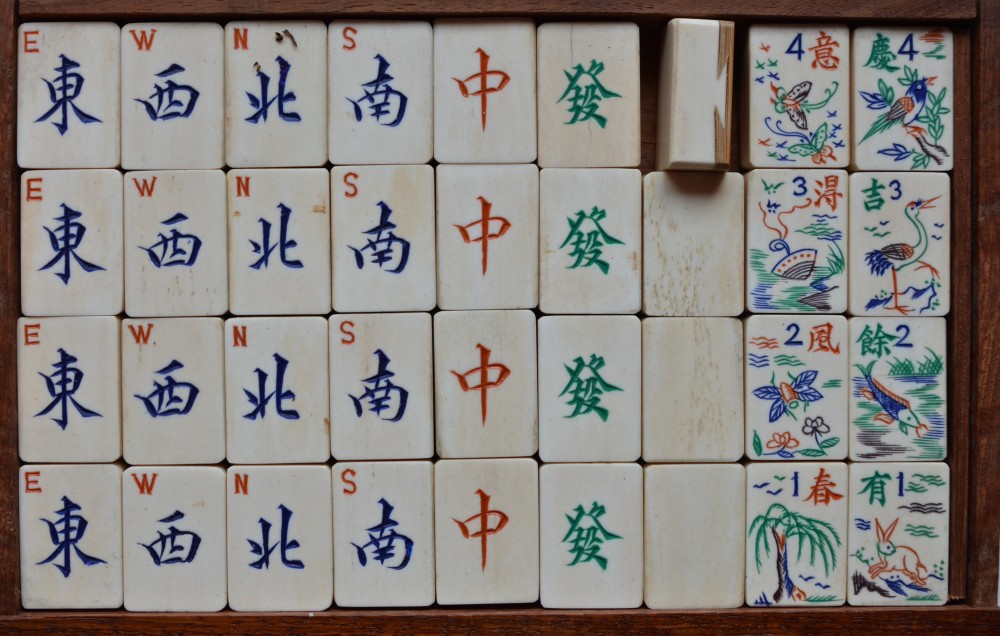 E W N S 4 意 慶 4
東 西 北 南 中 發
E W N S 3 淂 吉 3
東 西 北 南 中 發
E W N S 2 風 餘 2
東 西 北 南 中 發
E W N S 1 春 有 1
東 西 北 南 中 發